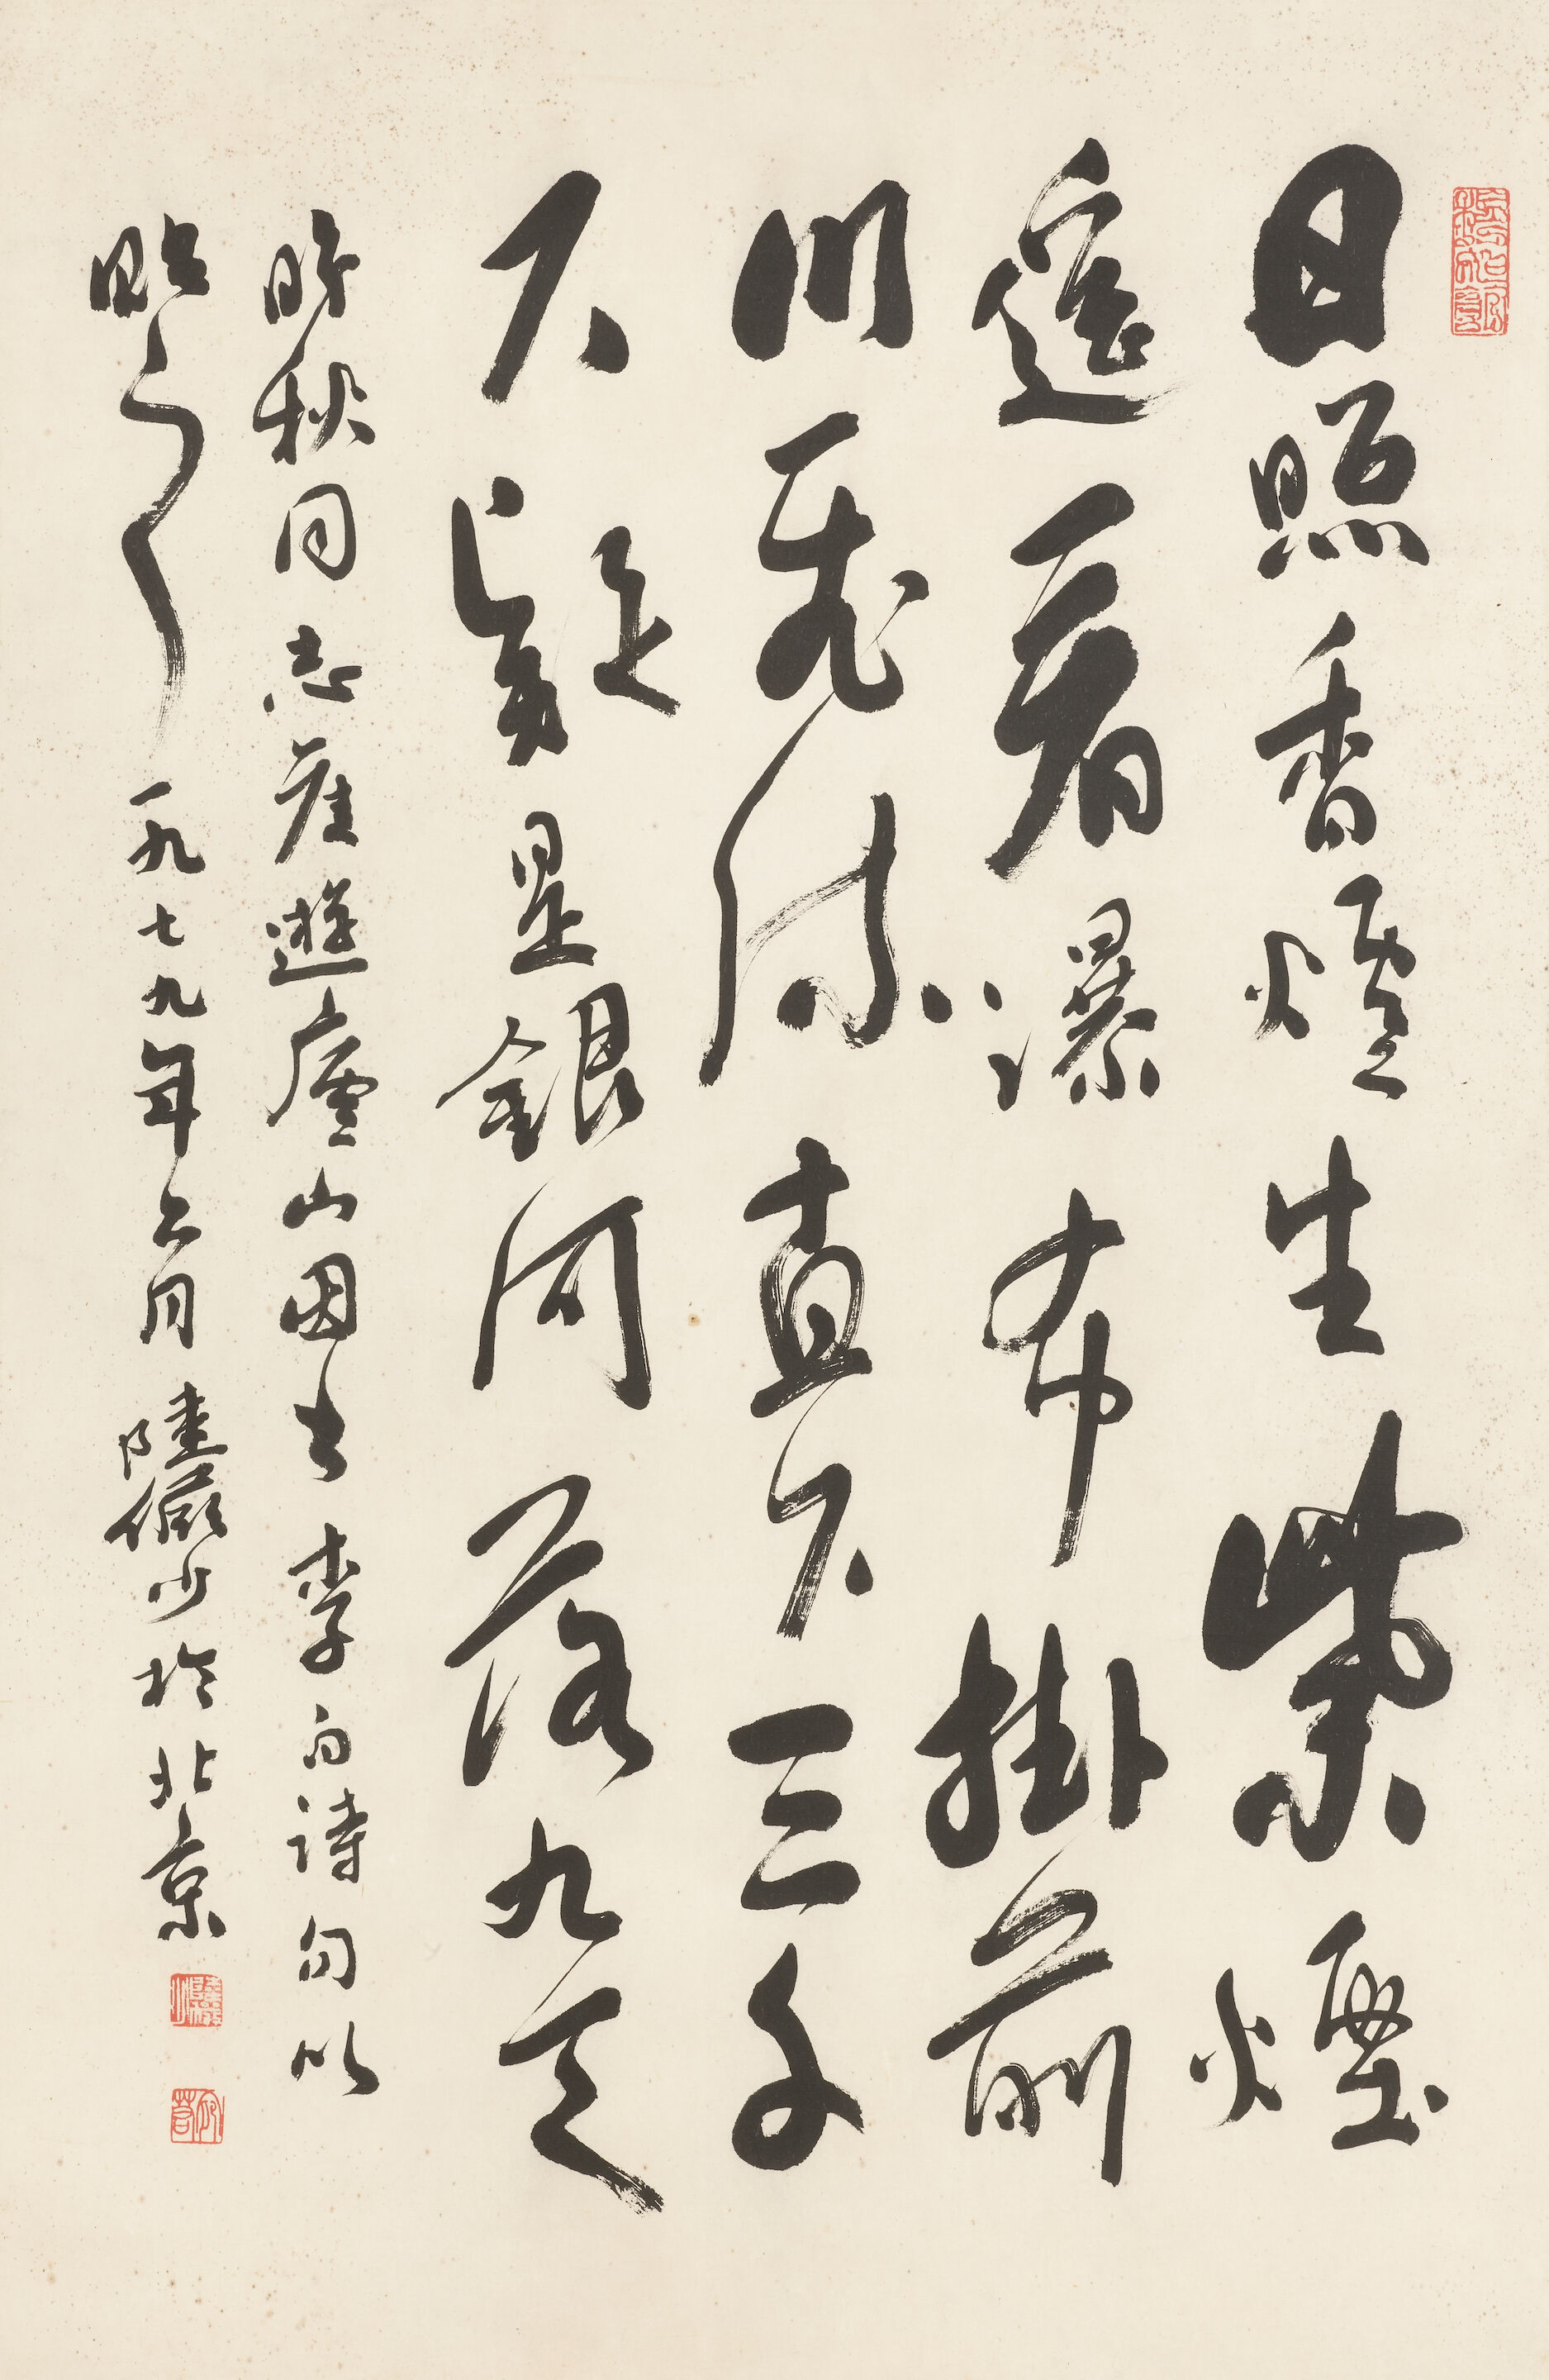 日照香爐生紫煙
遙看瀑布掛前
川飛流直下三千
尺疑是銀河落九天
秋同志遊廬山因書李白詩句以
貽之一九七九年二月陸儼少於北京
陸儼少
宛若